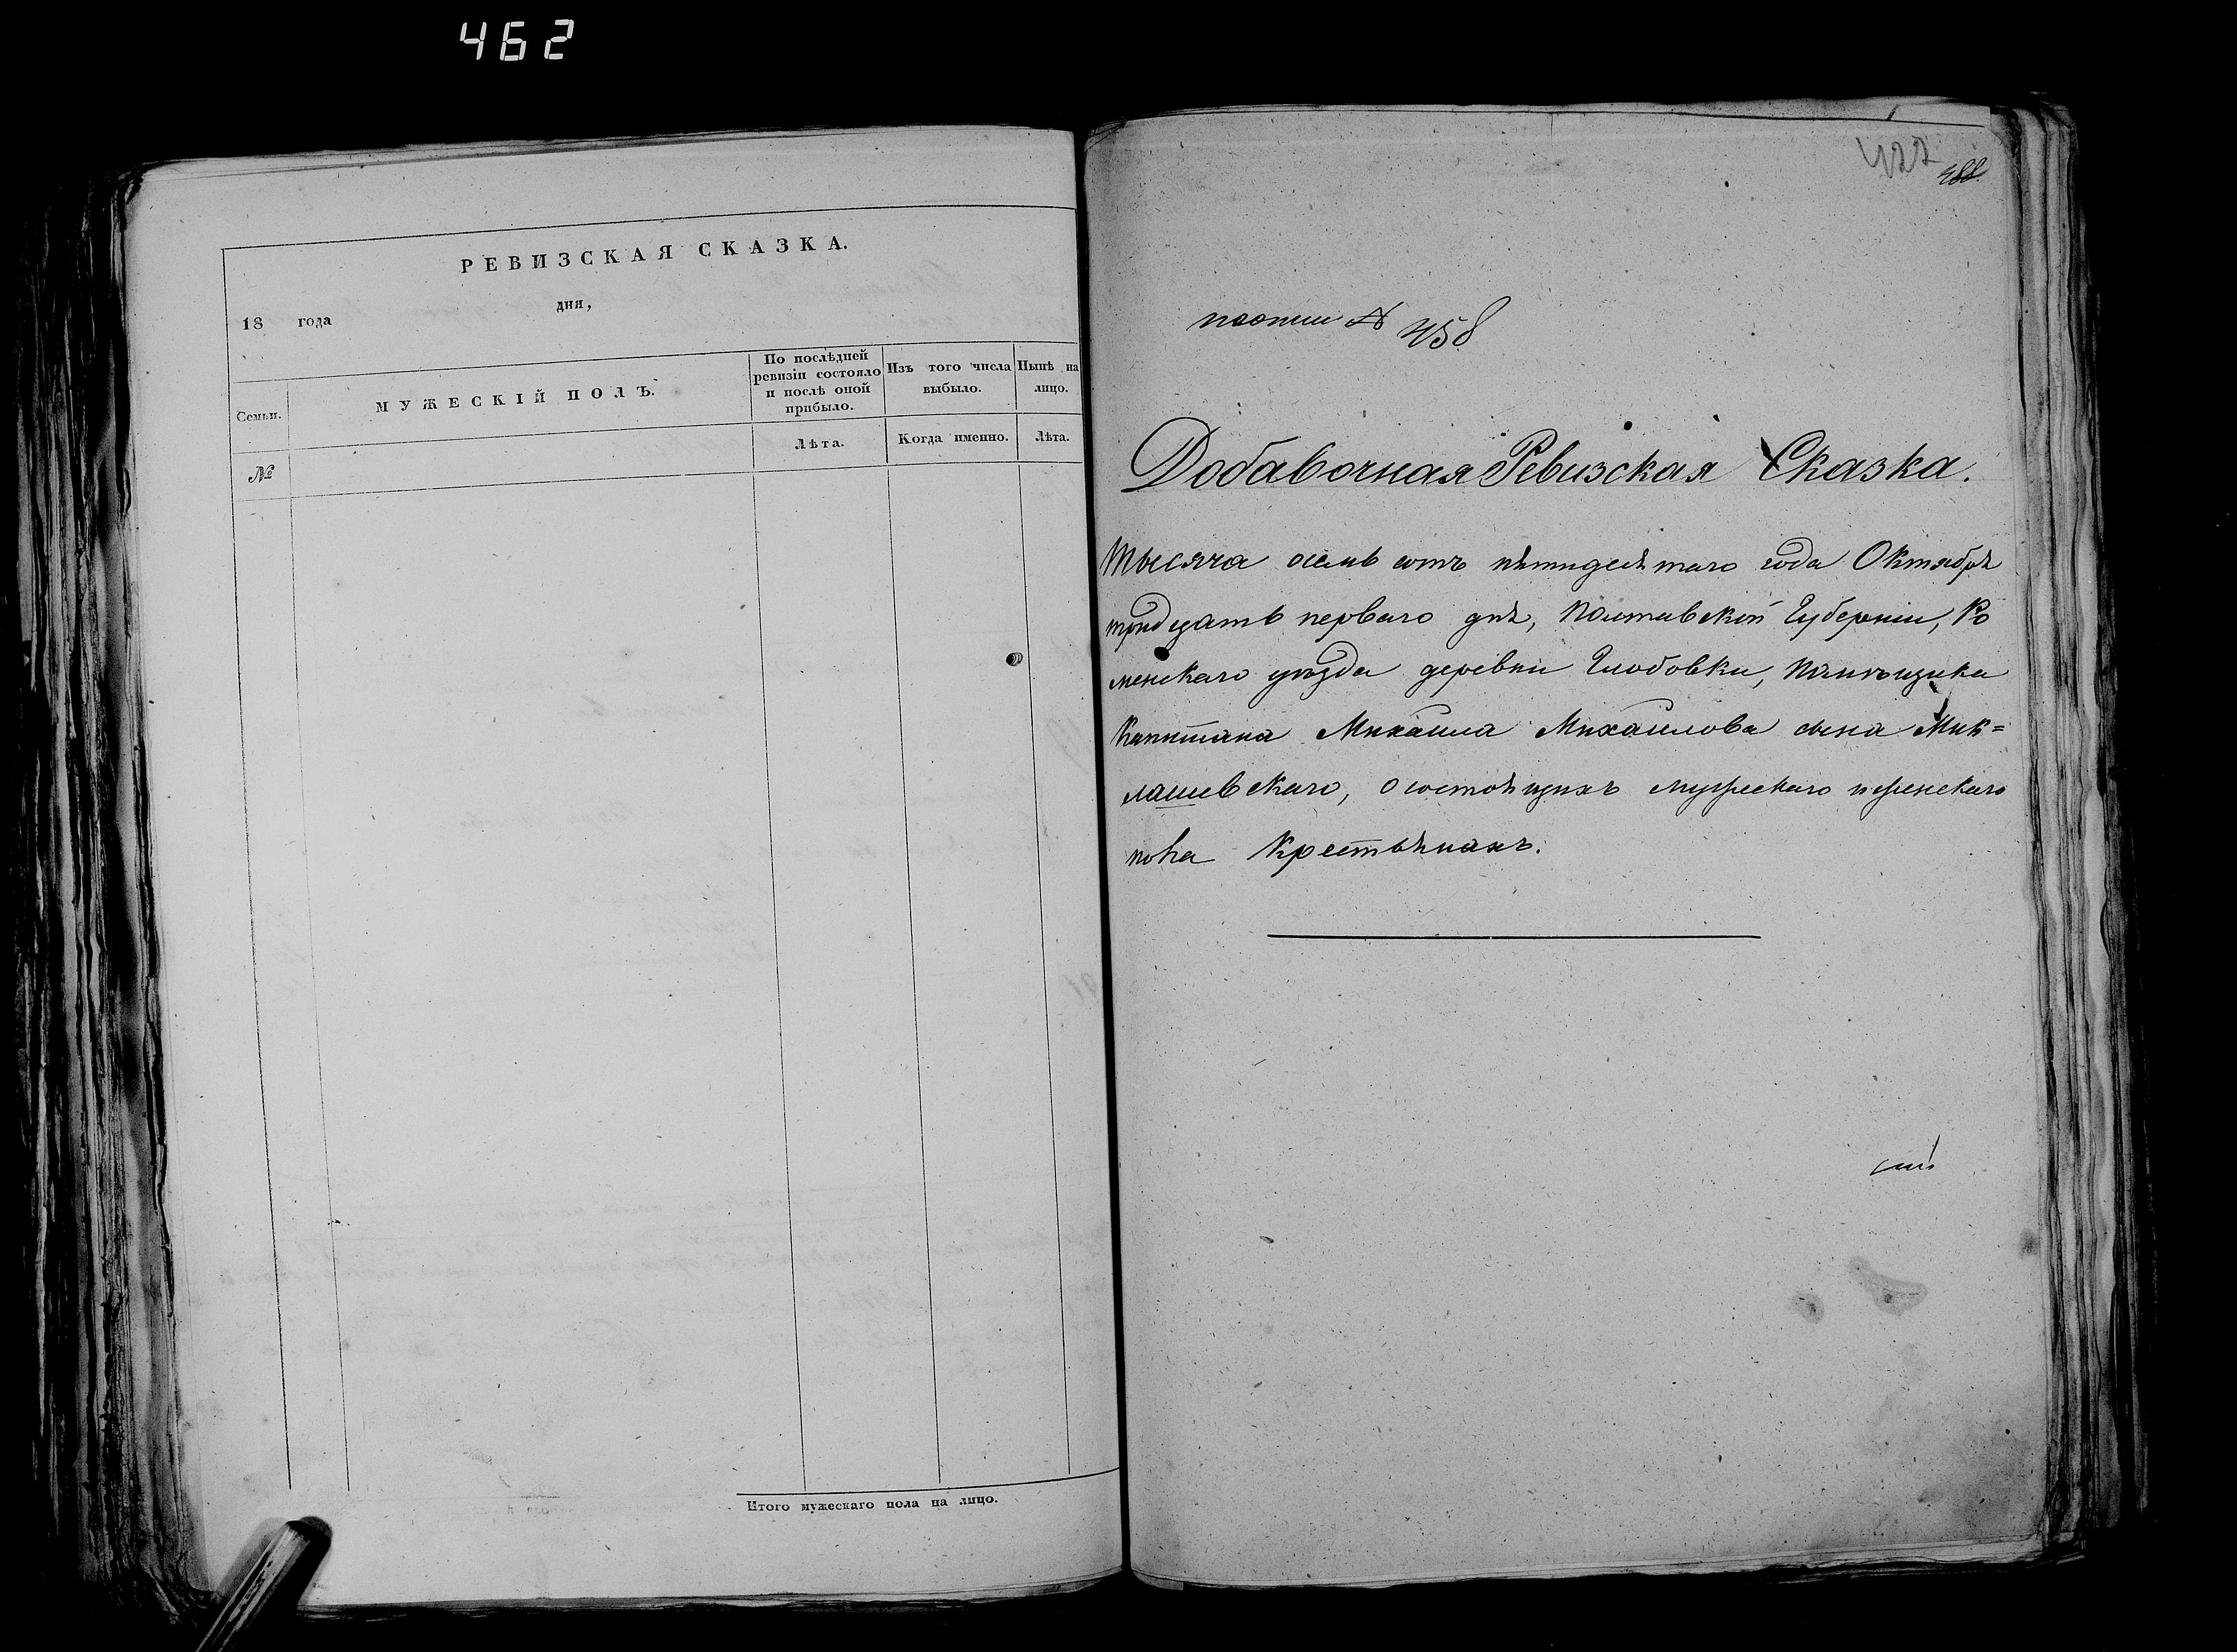 462
РЕВИЗСКАЯ СКАЗКА.
18 года дня,
Семьи.
МУЖЕСКІЙ ПОЛЪ.
По послѣдней
ревизіи состояло
и послѣ оной
прибыло.
Изъ того числа
выбыло.
Нынѣ на
лицо.
Лѣта.
Когда именно.
Лѣта.
№
Итого мужескаго пола на лицо.
422
488.
№ 458
Добавочная Ревизская Сказка.
Тысяча осемь сотъ пятидесятаго года Октября
тридцать перваго дня, Полтавской Губерніи, Ро
менскаго уѣзда деревни Глобовки, помѣщика
Капитана Михаила Михаилова сына Мик=
лашевскаго, о состоящихъ мужескаго и женскаго
пола Крестьянахъ.